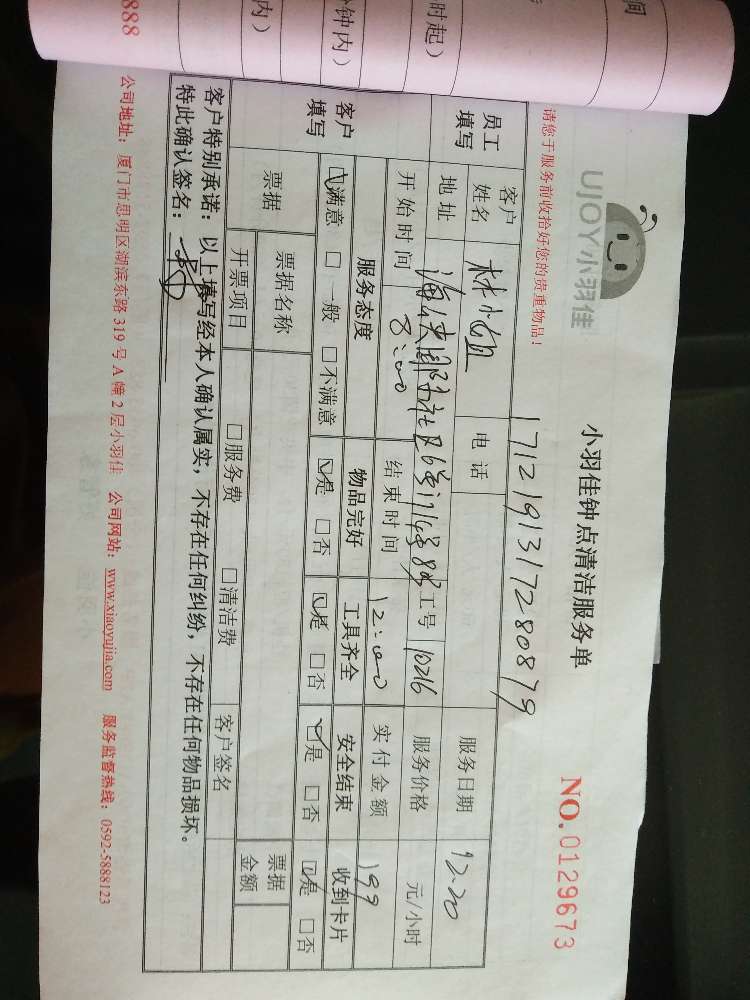 UJOY小羽佳
小羽佳钟点清洁服务单
NO.0129673
请您于服务前收拾好您的贵重物品！
1712191317280879
员工填写
客户姓名 林小姐 电话 服务日期 12.20
地址 工号 10216 服务价格 元/小时
开始时间 8:00 结束时间 12:00 实付金额 199
客户填写
服务态度 物品完好 工具齐全 安全结束 收到卡片
☑满意 □一般 □不满意 ☑是 □否 ☑是 □否 ☑是 □否 ☑是 □否
票据 票据名称 □服务费 □清洁费 客户签名 票据金额
开票项目
客户特别承诺：以上填写经本人确认属实，不存在任何纠纷，不存在任何物品损坏。
特此确认签名：
公司地址：厦门市思明区湖滨东路319号A幢2层小羽佳 公司网站：www.xiaoyujia.com 服务监督热线：0592-5888123
间
时起）
钟内）
内）
888